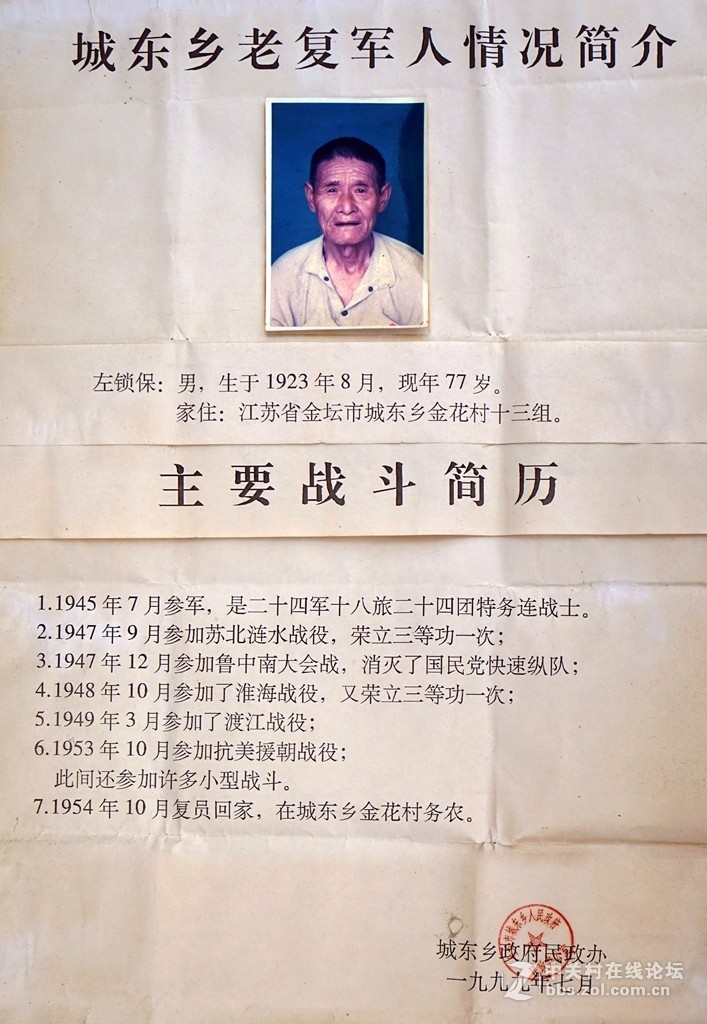 城东乡老复军人情况简介
左锁保：男，生于1923年8月，现年77岁。
家住：江苏省金坛市城东乡金花村十三组。
主要战斗简历
1.1945年7月参军，是二十四军十八旅二十四团特务连战士。
2.1947年9月参加苏北涟水战役，荣立三等功一次；
3.1947年12月参加鲁中南大会战，消灭了国民党快速纵队；
4.1948年10月参加了淮海战役，又荣立三等功一次；
5.1949年3月参加了渡江战役；
6.1953年10月参加抗美援朝战役；
此间还参加许多小型战斗。
7.1954年10月复员回家，在城东乡金花村务农。
市城东乡人民政府
城东乡政府民政办
一九九九年七月
中关村在线论坛
bbs.zol.com.cn